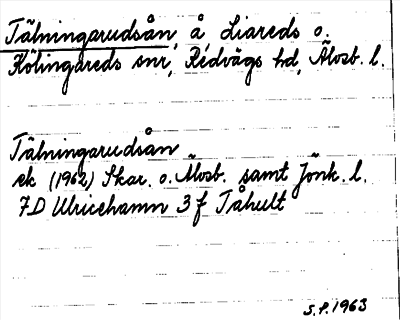 Tälningarudsån, å Liareds o.
Kölingareds snr, Redvägs hd, Älvsb. l.
Tälningarudsån
ek (1962) Skar. o. Älvsb. samt Jönk. l.
7D Ulricehamn 3 f Tåhult
S.P. 1963